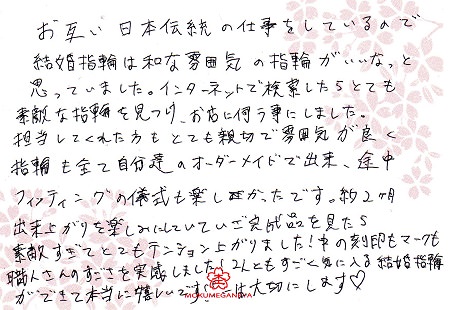 お互い日本伝統の仕事をしているので
結婚指輪は和な雰囲気の指輪がいいなっと
思っていました。インターネットで検索したらとても
素敵な指輪を見つけ、お店に伺う事にしました。
担当してくれた方もとても親切で雰囲気が良く
指輪も全て自分達のオーダーメイドで出来、途中
フィッティングの儀式も楽しかったです。約2ヶ月
出来上がりを楽しみにしていていざ完成品を見たら
素敵すぎてとてもテンション上がりました!中の刻印もマークも
職人さんのすごさを実感しました!2人ともすごく気に入る結婚指輪
ができて本当に嬉しいです。一生大切にします♡
MOKUMEGANEYA